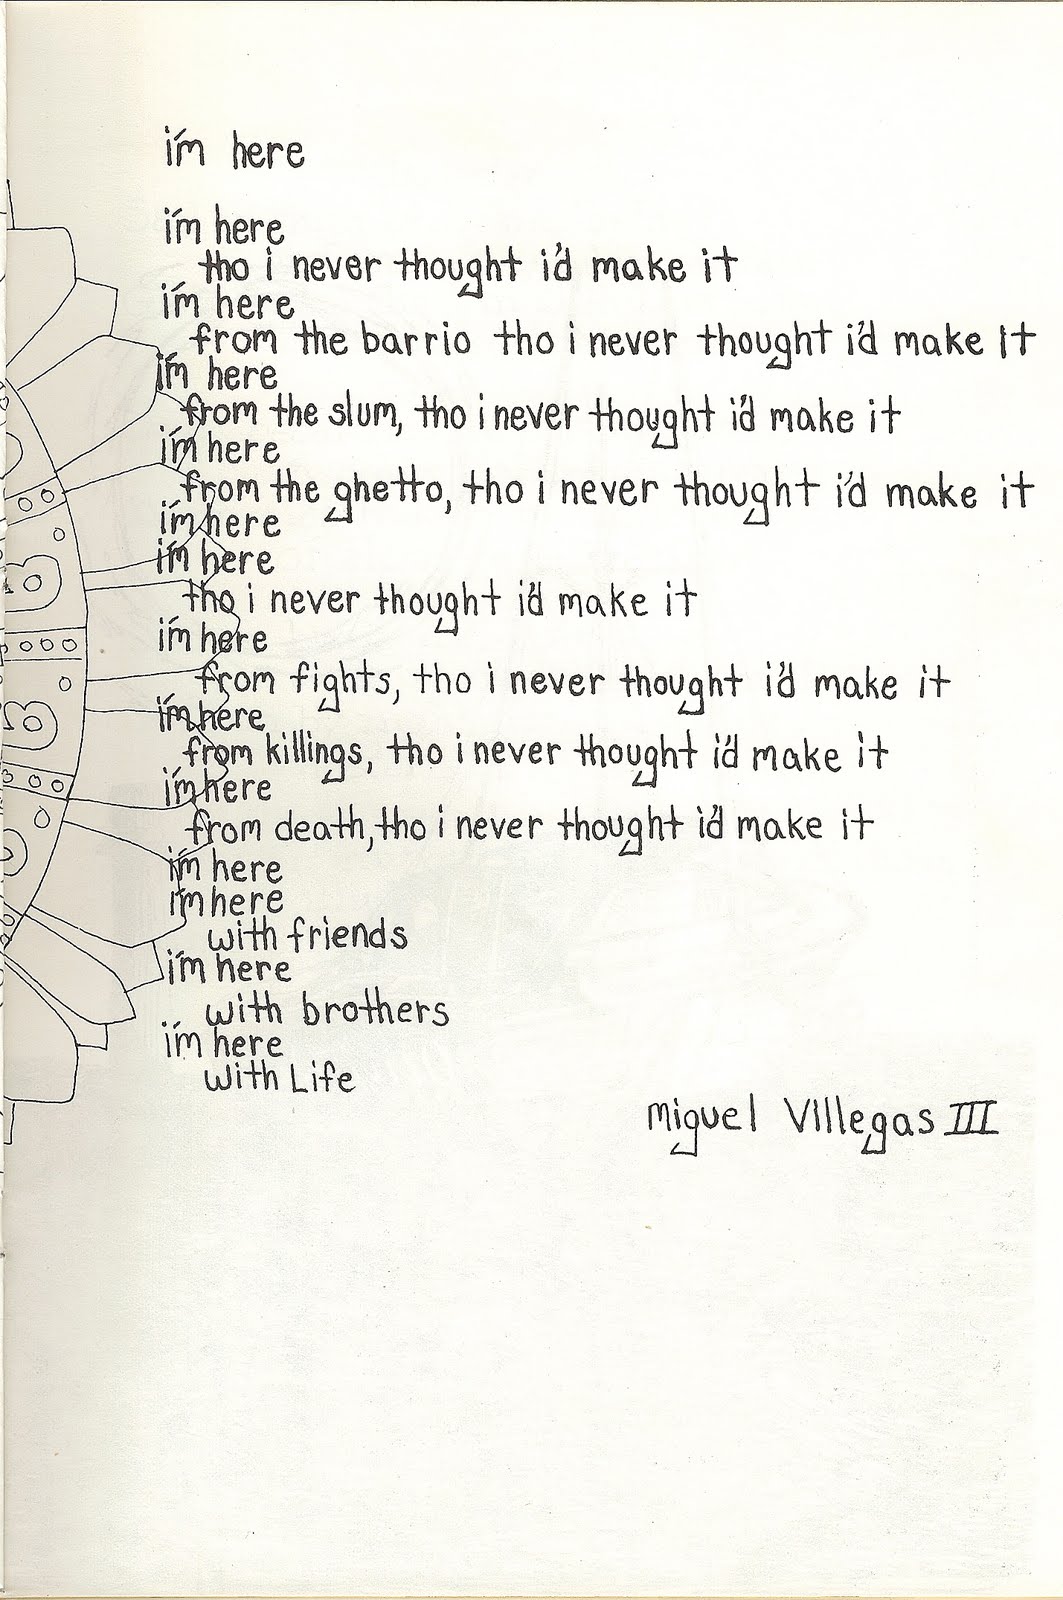 i'm here
i'm here
tho i never thought i'd make it
i'm here
from the barrio tho i never thought i'd make it
i'm here
from the slum, tho i never thought i'd make it
i'm here
from the ghetto, tho i never thought i'd make it
i'm here
i'm here
tho i never thought i'd make it
i'm here
from fights, tho i never thought i'd make it
i'm here
from killings, tho i never thought i'd make it
i'm here
from death, tho i never thought i'd make it
i'm here
i'm here
with friends
i'm here
with brothers
i'm here
with Life
Miguel Villegas III